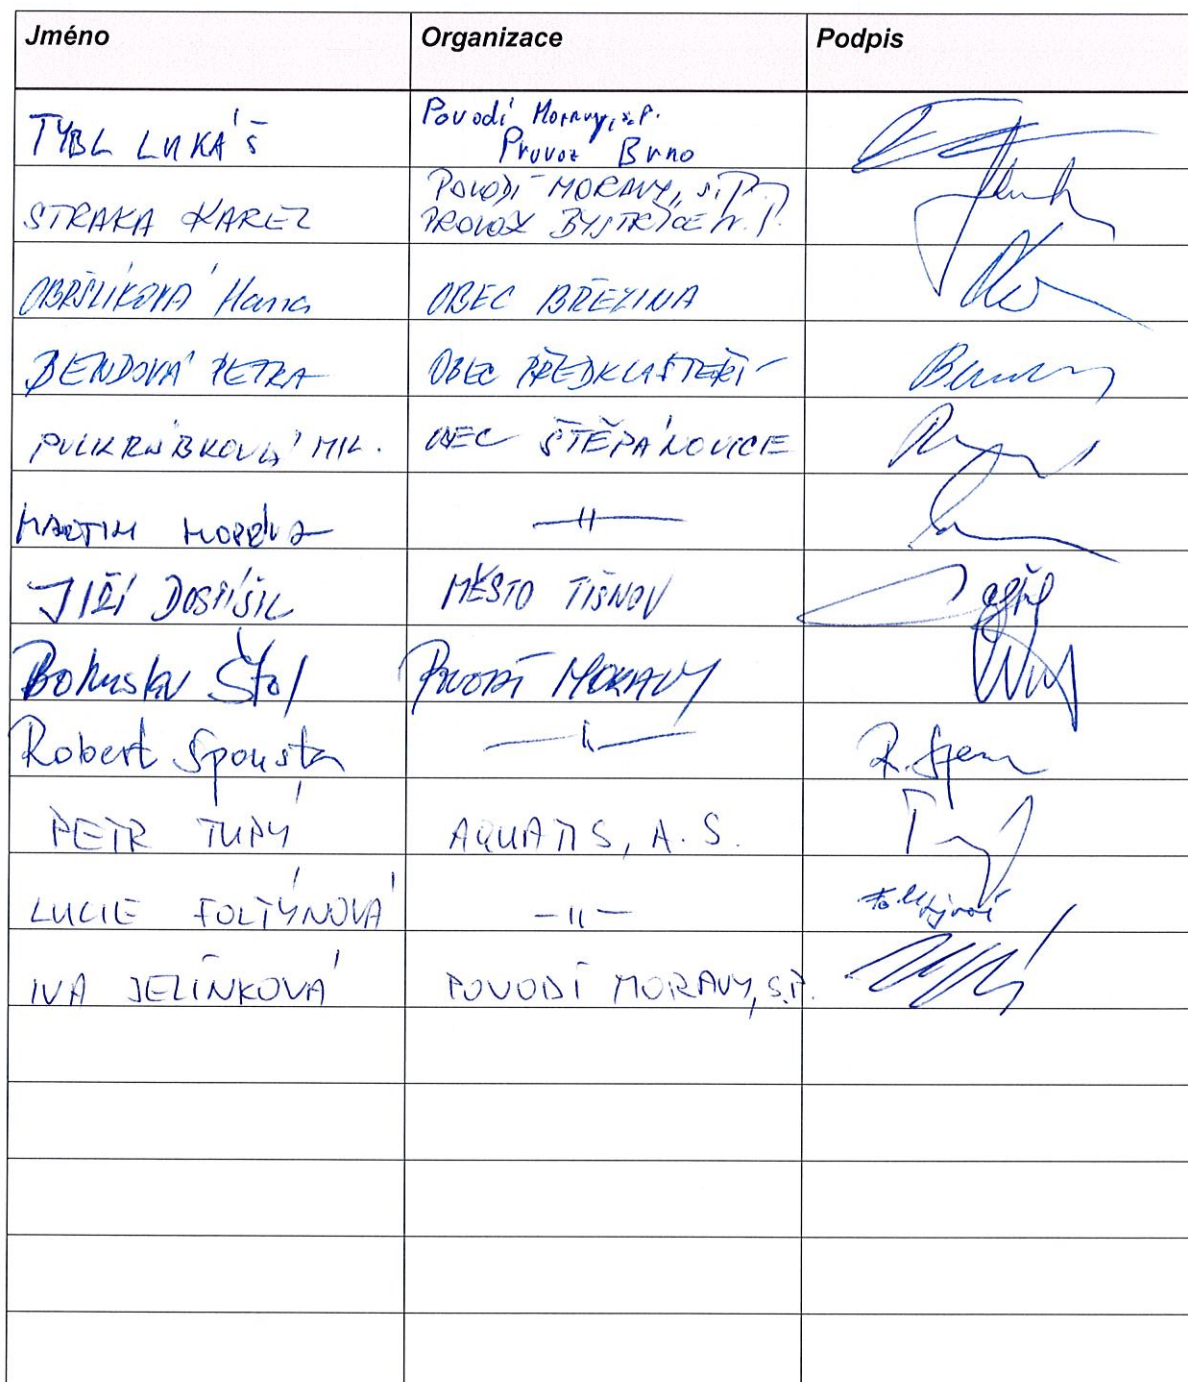 Jméno Organizace Podpis
TYBL LUKÁŠ Povodí Moravy, s.p.
Provoz Brno
STRAKA KAREL POVODÍ MORAVY, s.p.
PROVOZ BYSTŘICE n. P.
OBRŠLÍKOVÁ Hana OBEC BŘEZINA
BENDOVÁ PETRA OBEC PŘEDKLÁŠTEŘÍ
PULKRÁBKOVÁ MIL. OBEC ŠTĚPÁNOVICE
MARTIN –||–
JIŘÍ DOSPÍŠIL MĚSTO TIŠNOV
Bohuslav Štol POVODÍ MORAVY
Robert Spousta –||–
PETR TUPÝ AQUATIS, A.S.
LUCIE FOLTÝNOVÁ –||– Foltýnová
IVA JELÍNKOVÁ POVODÍ MORAVY, S.P.